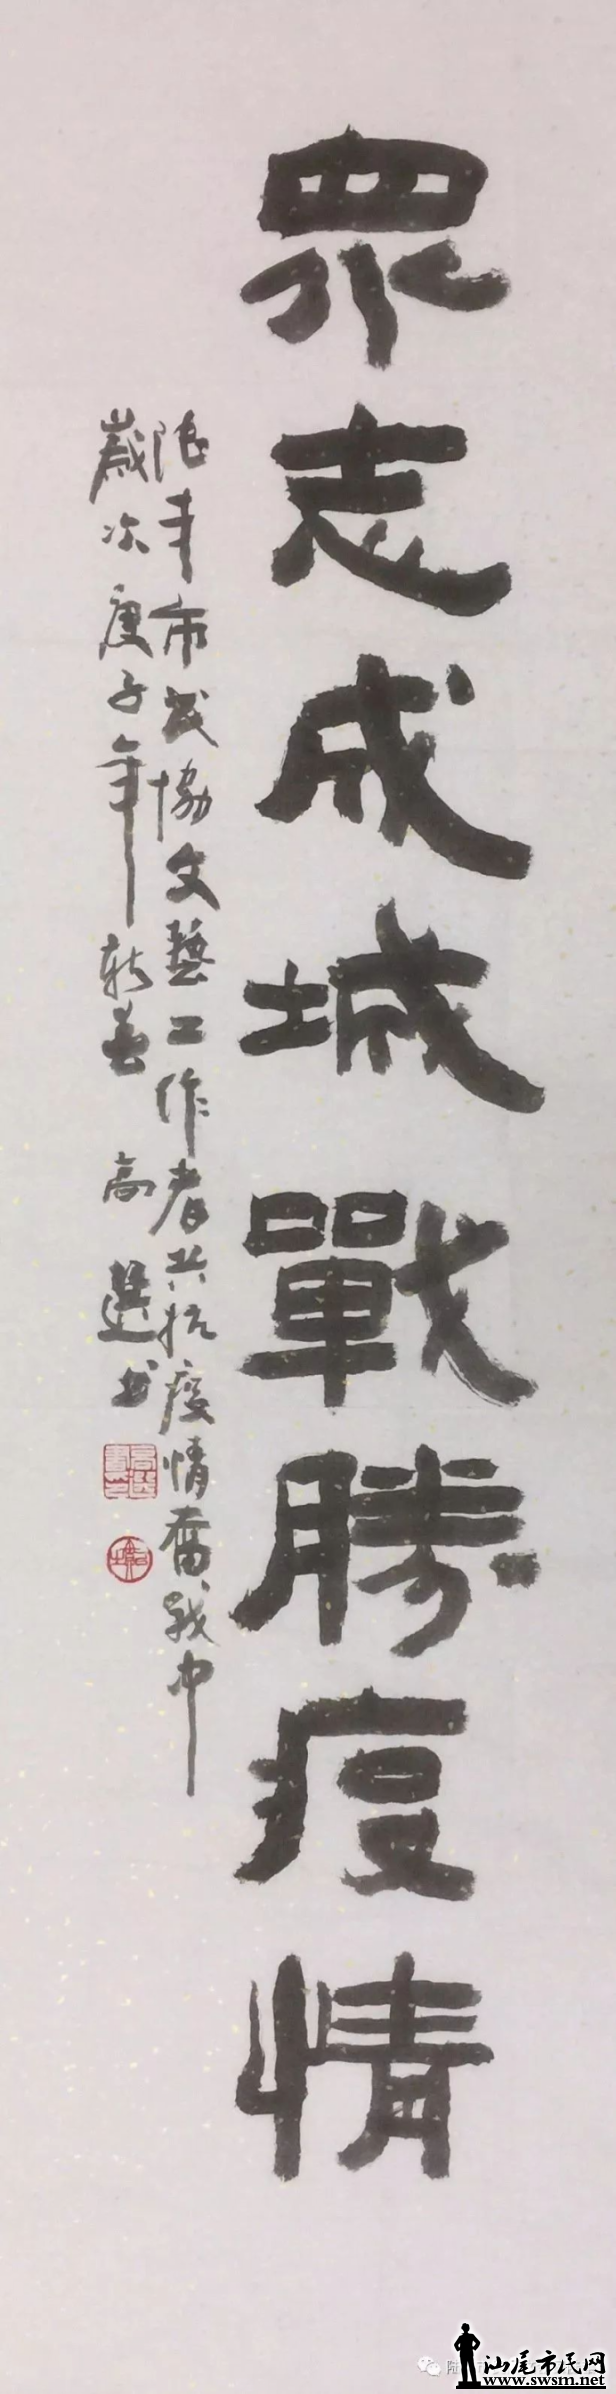 眾志成城戰勝疫情
陸丰市民協文藝工作者共抗疫情奮战中
歲次庚子年新春 高選书
汕尾市民网
www.swsm.net